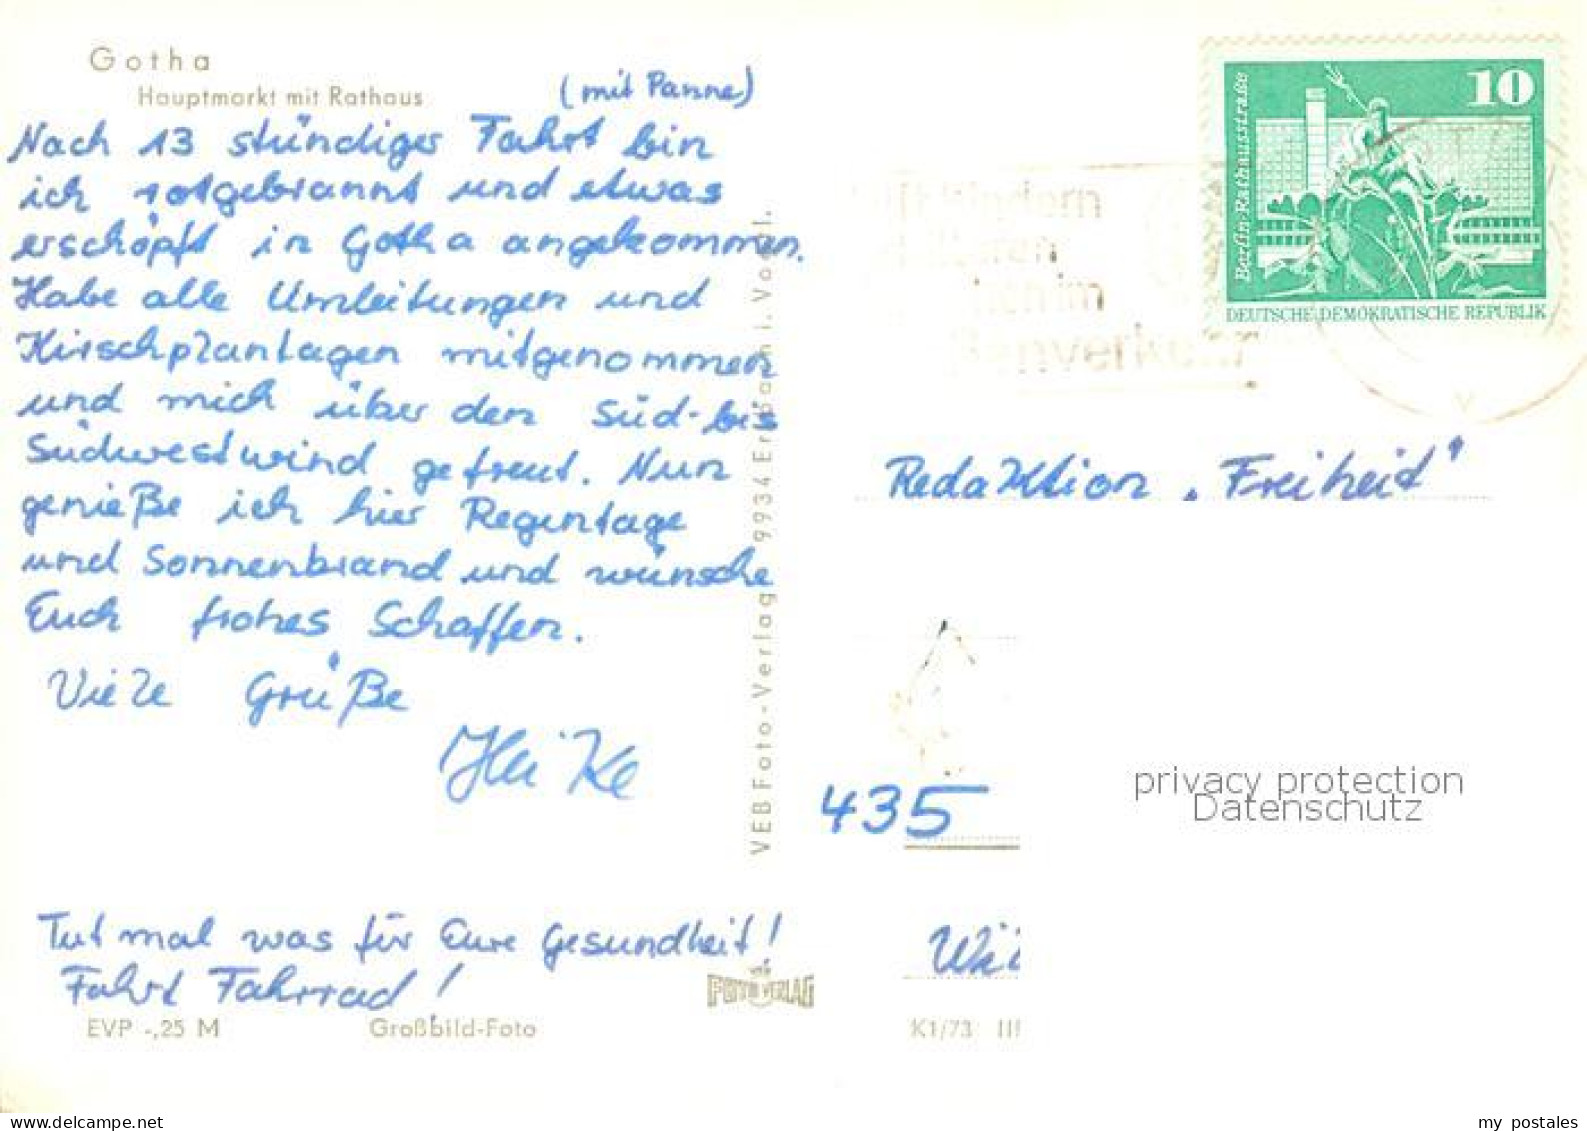 Gotha
Hauptmarkt mit Rathaus
(mit Panne)
Nach 13 stündiger Fahrt bin
ich rotgebrannt und etwas
erschöpft in Gotha angekommen.
Habe alle Umleitungen und
Kirschplantagen mitgenommen
und mich über den Süd- bis
Südwestwind gefreut. Nun
genieße ich hier Regentage
und Sonnenbrand und wünsche
Euch frohes Schaffen.
Viele Grüße
Heike
Tut mal was für Eure Gesundheit!
Fahrt Fahrrad!
EVP -,25 M
Großbild-Foto
VEB Foto-Verlag 9934 Erlbach i. Vogtl.
FOTO VERLAG
10
Berlin-Rathausstraße
DEUTSCHE DEMOKRATISCHE REPUBLIK
Kindern
im
Redaktion „Freiheit"
435
K1/73
privacy protection
Datenschutz
www.delcampe.net
my_postales